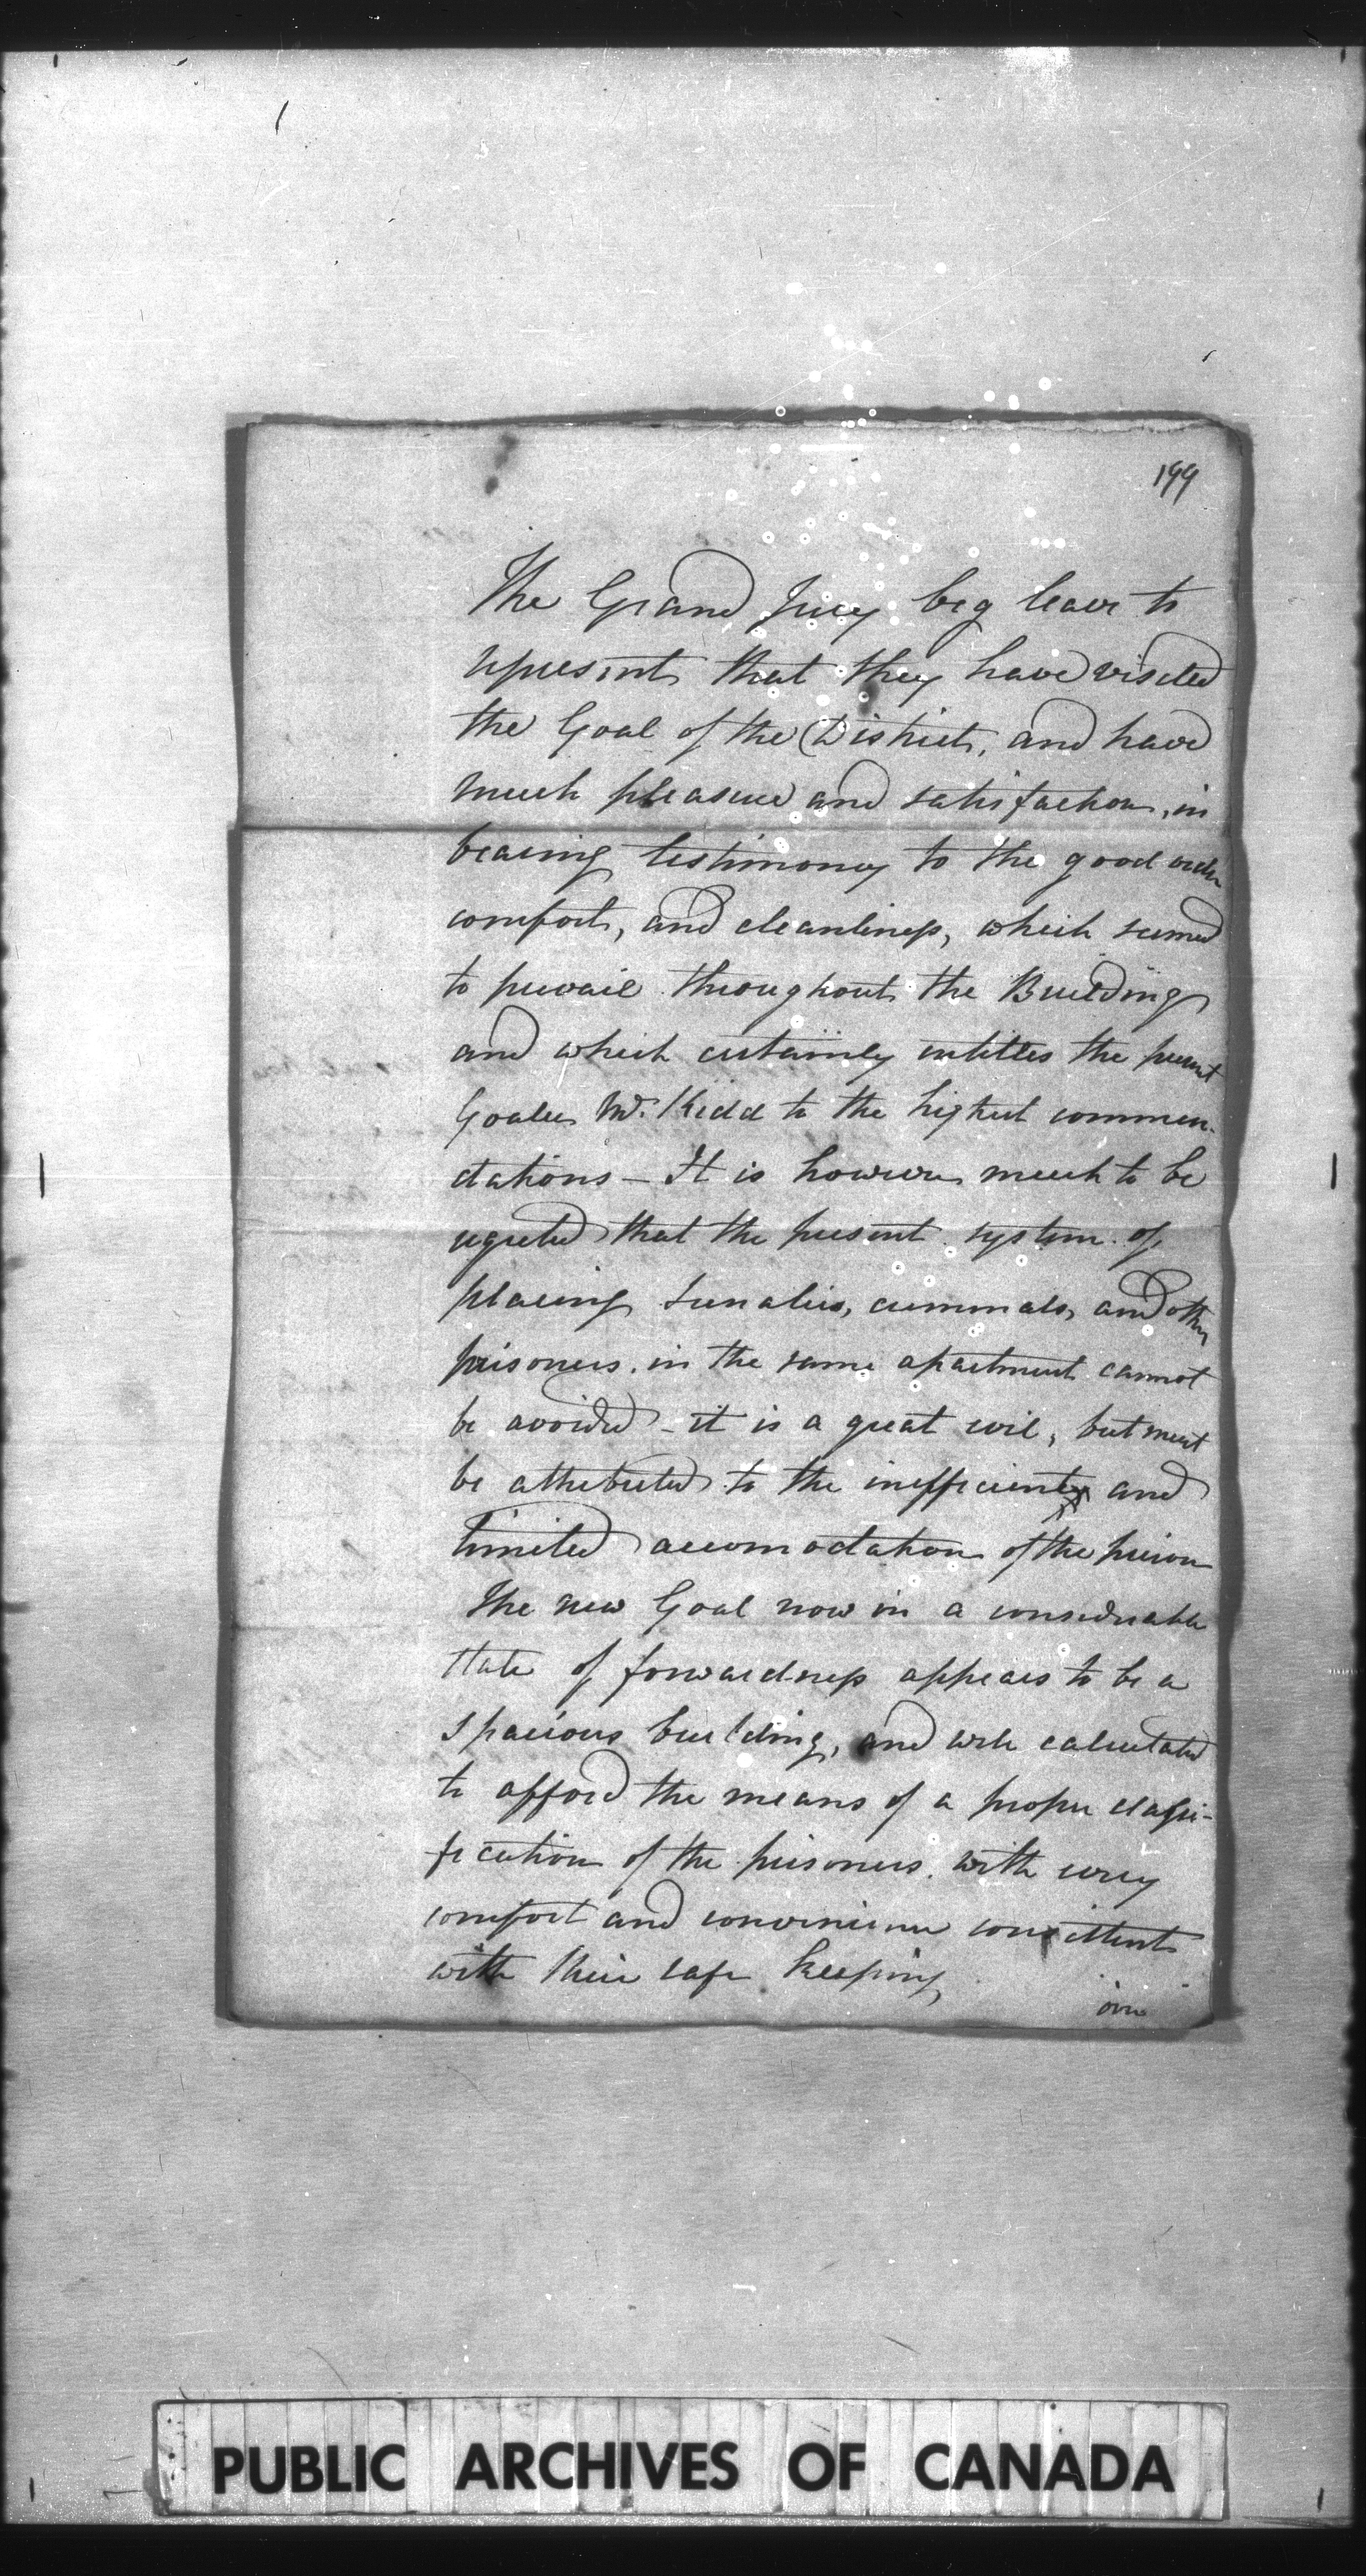 199
The Grand Jury beg leave to
represent that they have visited
the Goal of the District, and have
much pleasure and satisfaction, in
bearing testimony to the good order
comfort, and cleanliness, which seemed
to prevail throughout the Building
and which certainly entitles the present
Goaler Mr. Kidd to the highest commen-
dations - It is however much to be
regreted that the present system of
placing Lunatics, criminals, and other
prisoners in the same apartment cannot
be avoided - it is a great evil, but must
be attributed to the inefficient and
limited accomodation of the prison
The new Goal now in a considerable
state of forwardness appears to be a
spacious building, and well calculated
to afford the means of a proper classi-
fication of the prisoners with every
comfort and convenience consistent
with their safe keeping
PUBLIC ARCHIVES OF CANADA